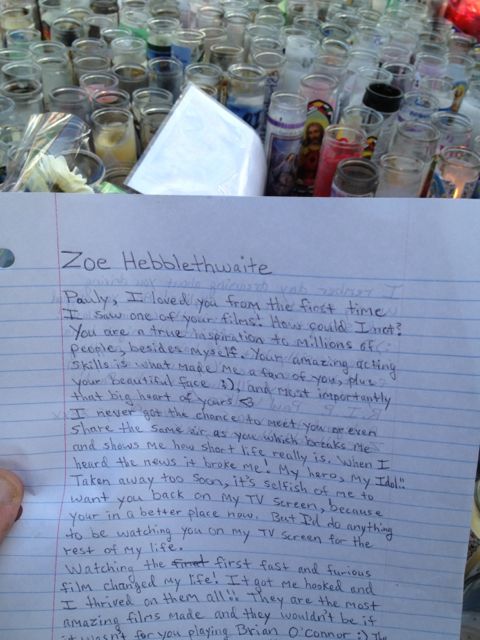 Zoe Hebblethwaite
Pauly, I loved you from the first time
I saw one of your films! How could I not?
You are a true inspiration to millions of
people, besides myself. Your amazing acting
skills is what made me a fan of yours, plus
your beautiful face :), and most importantly
that big heart of yours <3
I never got the chance to meet you or even
share the same air as you which breaks me
and shows me how short life really is. When I
heard the news it broke me! My hero, my Idol!!
Taken away too soon, it's selfish of me to
want you back on my TV screen, because
your in a better place now. But I'd do anything
to be watching you on my TV screen for the
rest of my life.
Watching the first fast and furious
film changed my life! It got me hooked and
I thrived on them all!! They are the most
amazing films made and they wouldn't be if
it wasn't for you playing Brian O'Connor :) The